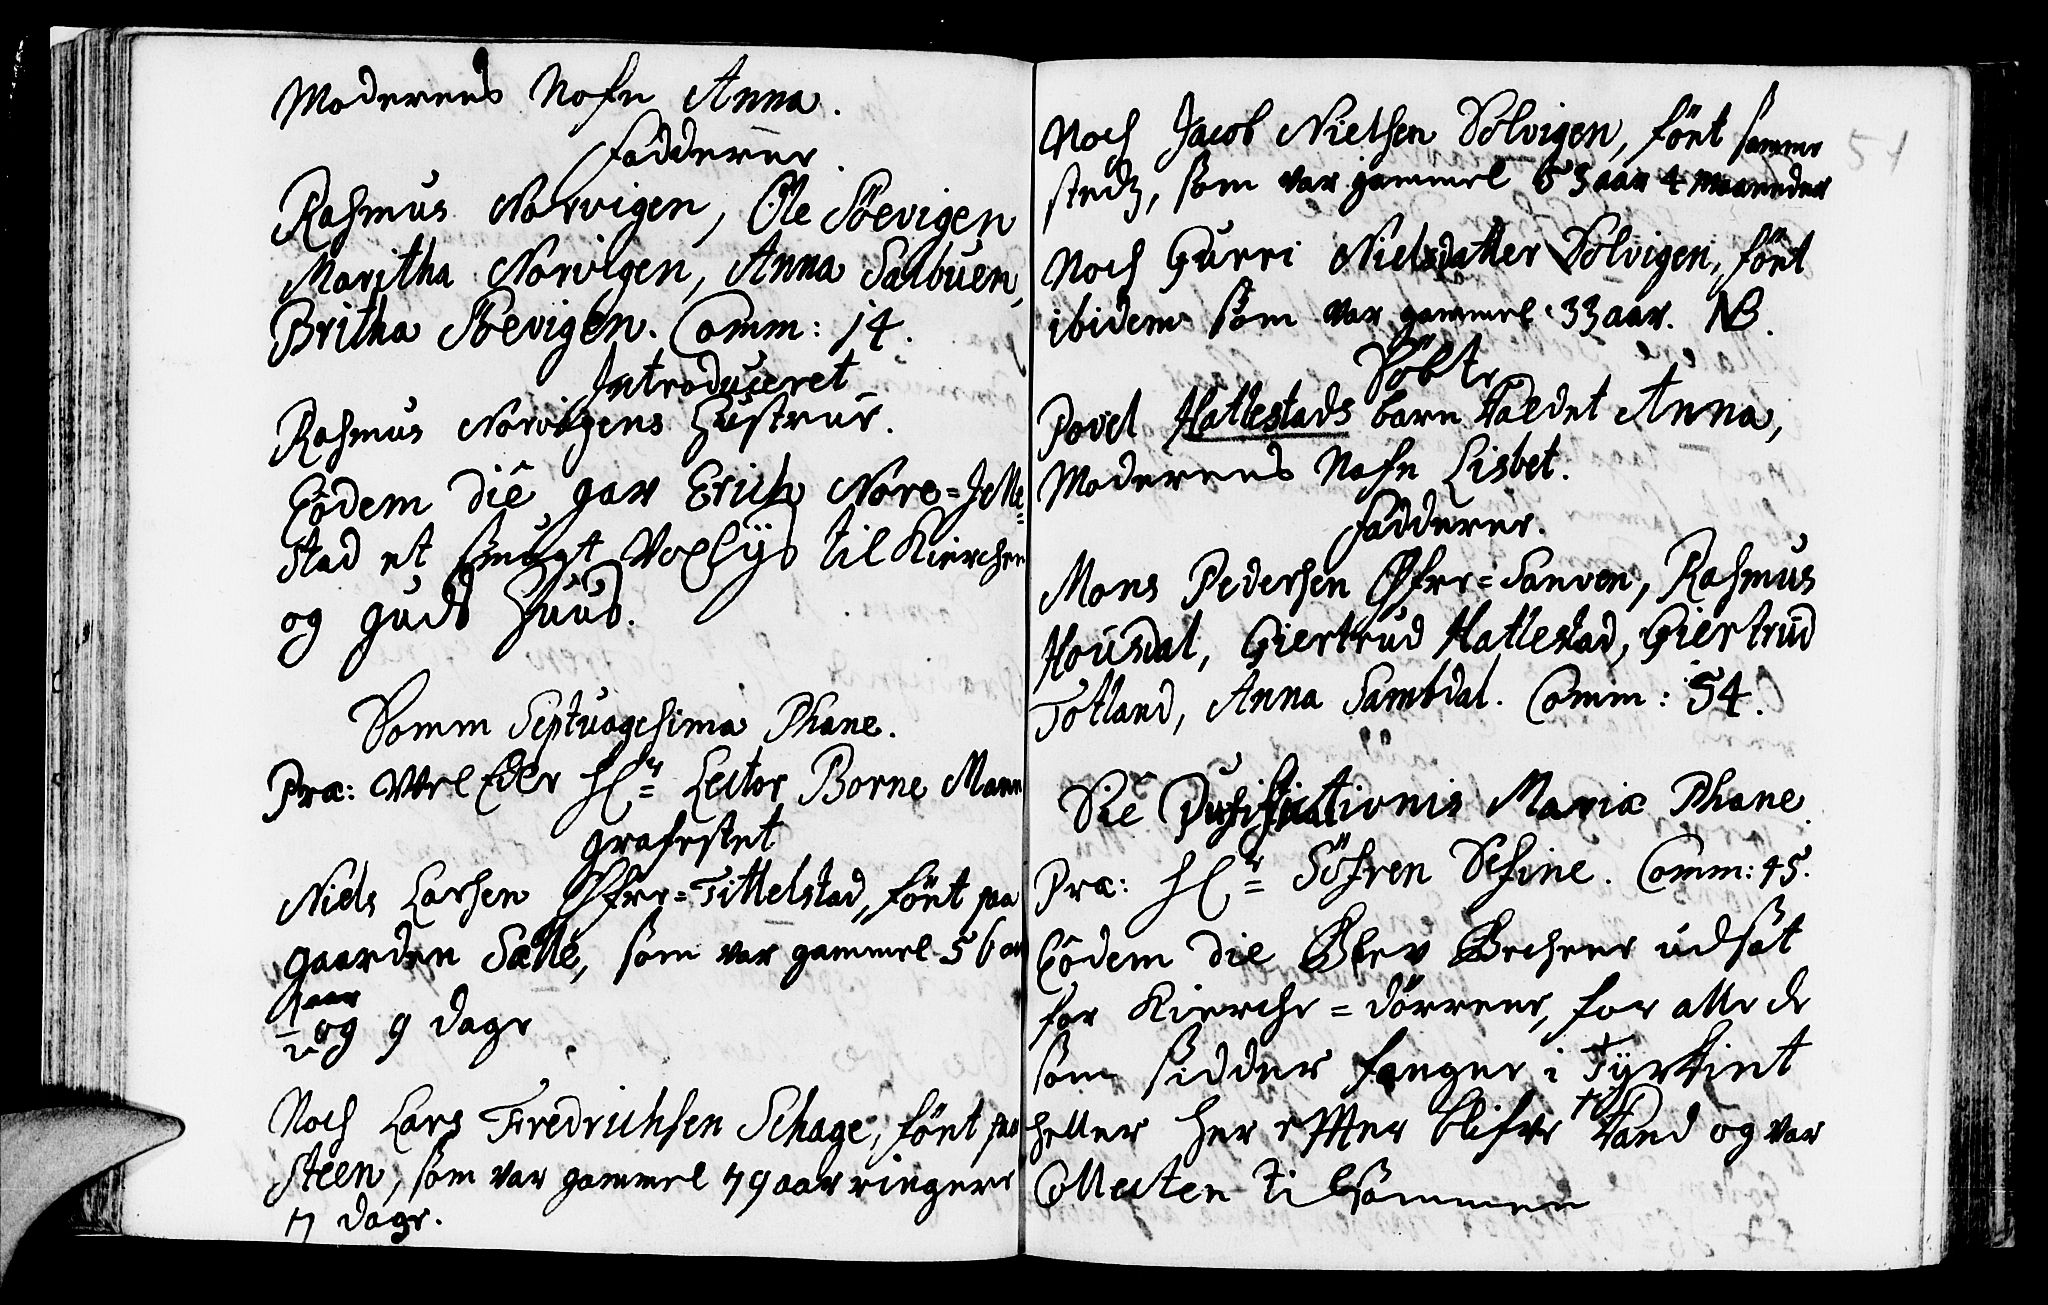 Moderens Nafn Anna.
Fadderne
Rasmus Norvigen, Ole Söevigen
Maritha Norvigen, Anna Salbuen,
Britha Söevigen. Comm: 14.
Introduceret
Rasmus Norvigens Hustrue.
Eodem die gav Erich Nore=Jelle=
stad et smugt Voxlys til Kierchen
og guds Huus.
Domm Septuagesima Phane.
Præ: Vel Edle Hr= Lector Borne Mann
grafestet
Niels Larsen Öfre=Tittelstad, födt paa
gaarden Sælle, som var gammel 56
1/2 aar og 9 dage
Noch Lars Fredrichsen Schage, födt paa
Steen, som var gammel 79 aar ringere
7 dage.
54
Noch Jacob Nielsen Dolvigen, födt samme
stedz, som var gammel 53 aar 4 maaneder
Noch Gurri Nielsdatter Dolvigen, födt
ibidem som var gammel 33 aar. NB.
Döbte
Povel Hatlestads barn kaldet Anna,
Moderens Nafn Lisbet.
Fadderne.
Mons Pedersen Öfre=Sanven, Rasmus
Housdal, Giertrud Hatlestad, Giertrud
Totland, Anna Samdal. Comm: 54.
Die Purificationis Mariæ Phane.
Præ: Hr= Söfren Define. Comm: 45.
Eodem die Blev Bechene udsat
for Kierche=dörrene, for alle de
som sidder fanger i Tyrkiet
heller her efter blifve til Vand og var
Collecten tilsammen